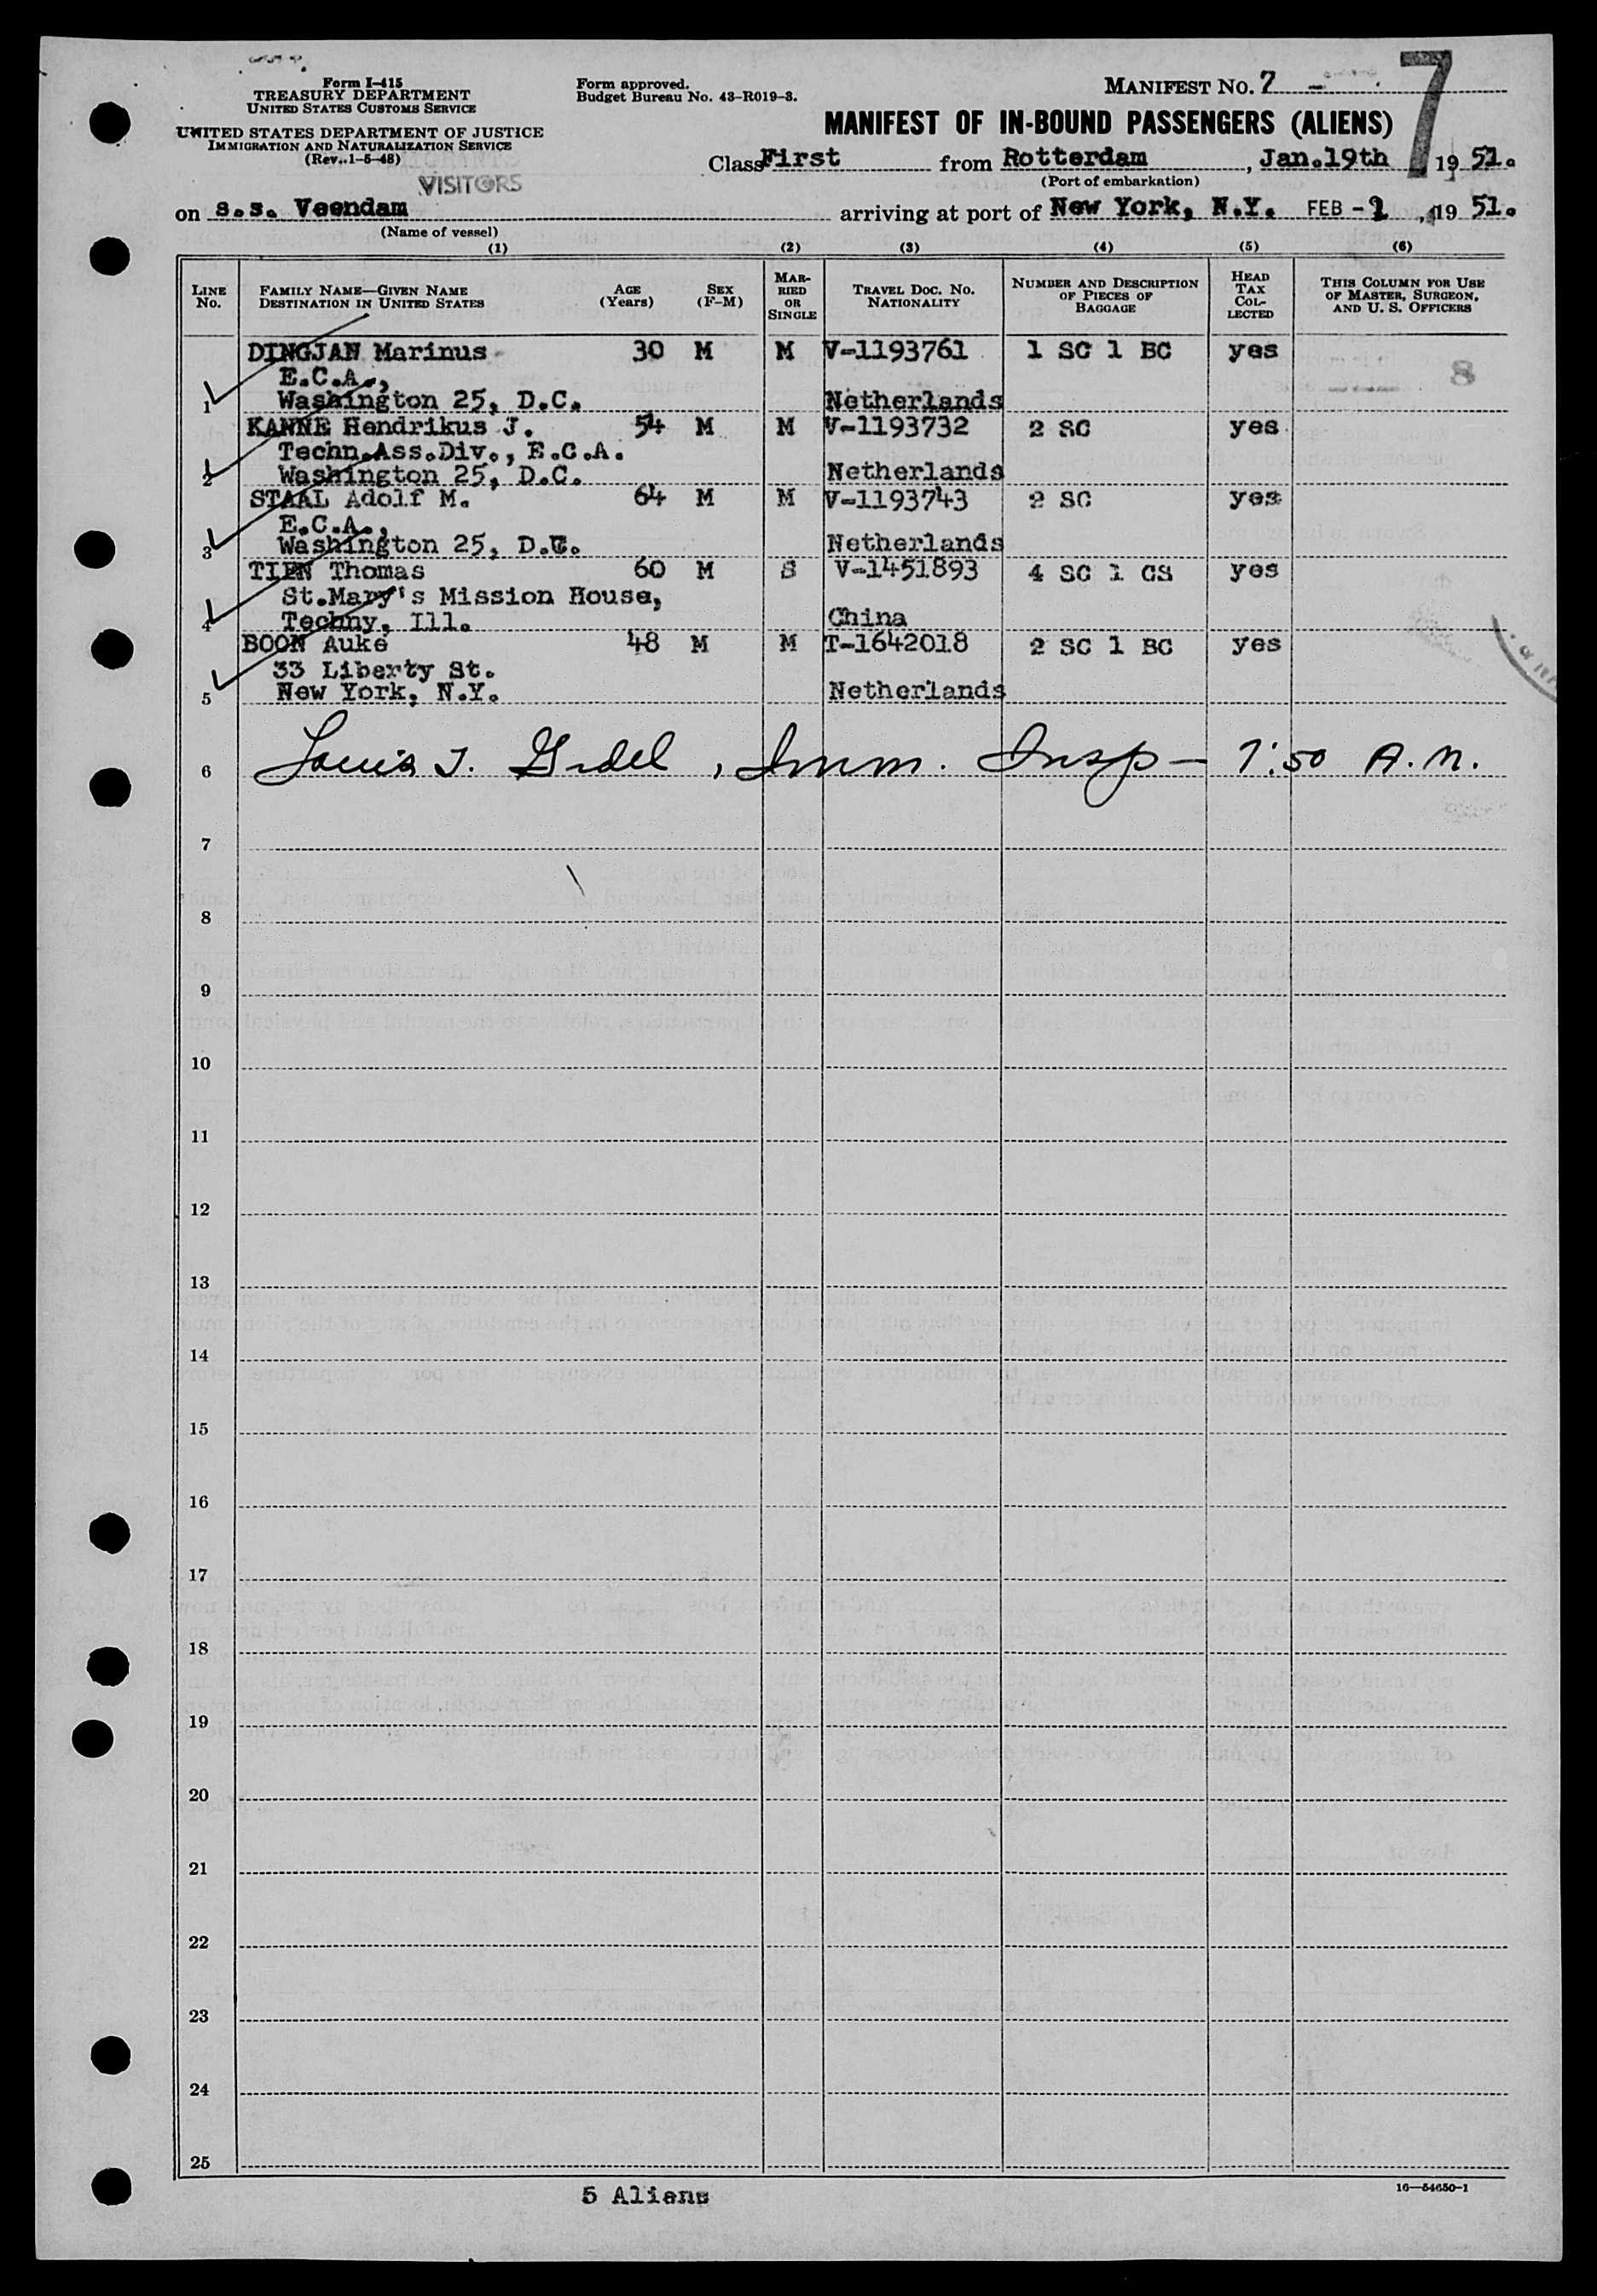 Form I-415
TREASURY DEPARTMENT
UNITED STATES CUSTOMS SERVICE
UNITED STATES DEPARTMENT OF JUSTICE
IMMIGRATION AND NATURALIZATION SERVICE
(Rev. 1-5-48)
Form approved.
Budget Bureau No. 43-R019-3.
MANIFEST NO. 7
7
MANIFEST OF IN-BOUND PASSENGERS (ALIENS)
Class First from Rotterdam, Jan.19th, 1951.
(Port of embarkation)
VISITORS
on s.s. Veendam arriving at port of New York, N.Y. FEB -1, 1951.
(Name of vessel)
(1) (2) (3) (4) (5) (6)
LINE NO. FAMILY NAME—GIVEN NAME DESTINATION IN UNITED STATES AGE (Years) SEX (F-M) MARRIED OR SINGLE TRAVEL DOC. NO. NATIONALITY NUMBER AND DESCRIPTION OF PIECES OF BAGGAGE HEAD TAX COLLECTED THIS COLUMN FOR USE OF MASTER, SURGEON, AND U. S. OFFICERS
DINGJAN Marinus 30 M M V-1193761 1 SC 1 BC yes
E.C.A., 8
1 Washington 25, D.C. Netherlands
KANNE Hendrikus J. 54 M M V-1193732 2 SC yes
Techn.Ass.Div., E.C.A.
2 Washington 25, D.C. Netherlands
STAAL Adolf M. 64 M M V-1193743 2 SC yes
E.C.A.,
3 Washington 25, D.C. Netherlands
TIEN Thomas 60 M S V-1451893 4 SC 1 CS yes
St.Mary's Mission House,
4 Techny, Ill. China
BOON Auke 48 M M T-1642018 2 SC 1 BC yes
33 Liberty St.
5 New York, N.Y. Netherlands
6 Louis J. , Imm. Insp - 7:50 A.M.
7
8
9
10
11
12
13
14
15
16
17
18
19
20
21
22
23
24
25
5 Aliens
16—54650-1